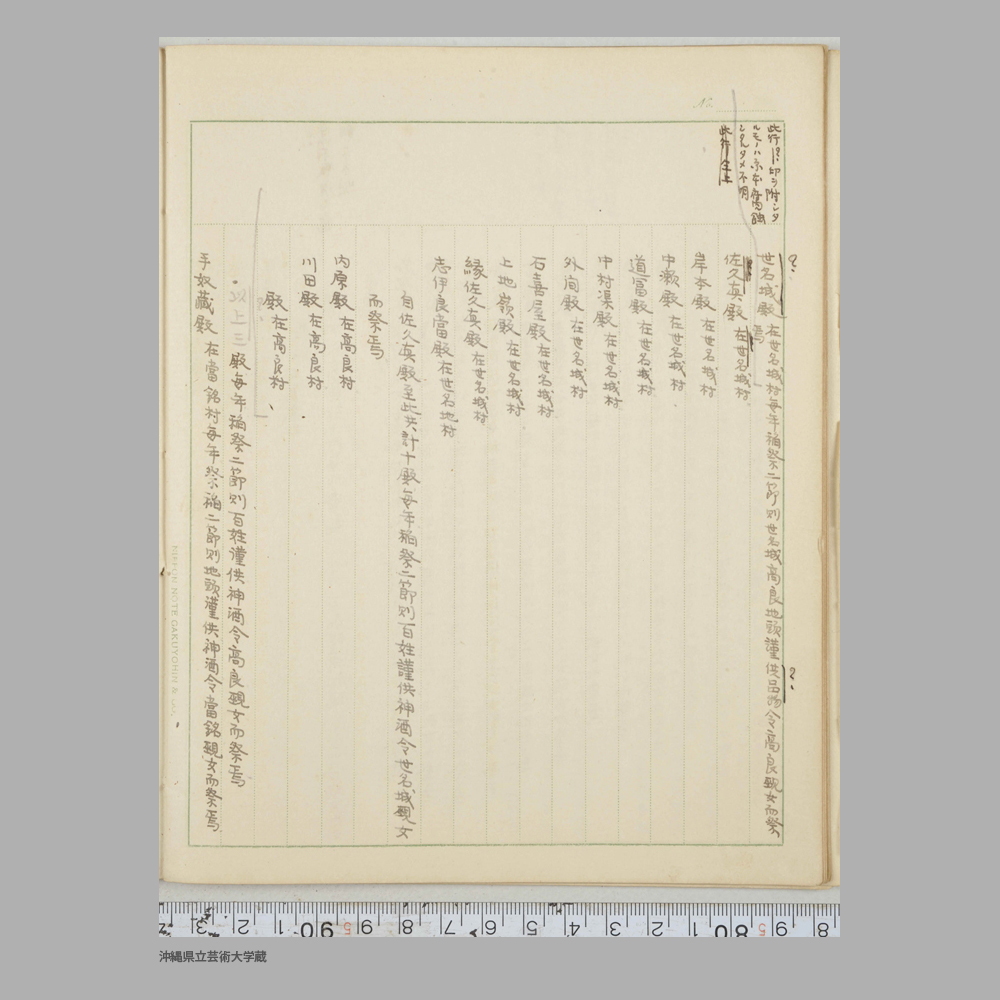 No.
此行ノ？印ヲ附シタ
ルモノハ原本腐蝕
シタルタメ不明
此行仝上
世名城殿 在世名城村毎年稲祭二節則世名城高良地頭謹供品物令高良覡女而祭
焉
佐久真殿 在世名城村
岸本殿 在世名城村
中瀬殿 在世名城村
道冨殿 在世名城村
中村渠殿 在世名城村
外間殿 在世名城村
石喜屋殿 在世名城村
上地嶺殿 在世名城村
縁佐久真殿 在世名城村
志伊良當殿 在世名地村
自佐久真殿至此共計十殿毎年稲祭二節則百姓謹供神酒令世名城覡女
而祭焉
内原殿 在高良村
川田殿 在高良村
殿 在高良村
以上三殿毎年稲祭二節則百姓謹供神酒令高良覡女而祭焉
手奴蔵殿 在當銘村毎年祭稲二節則地頭謹供神酒令當銘覡女而祭焉
NIPPON NOTE GAKUYOHIN & CO.
沖縄県立芸術大学蔵